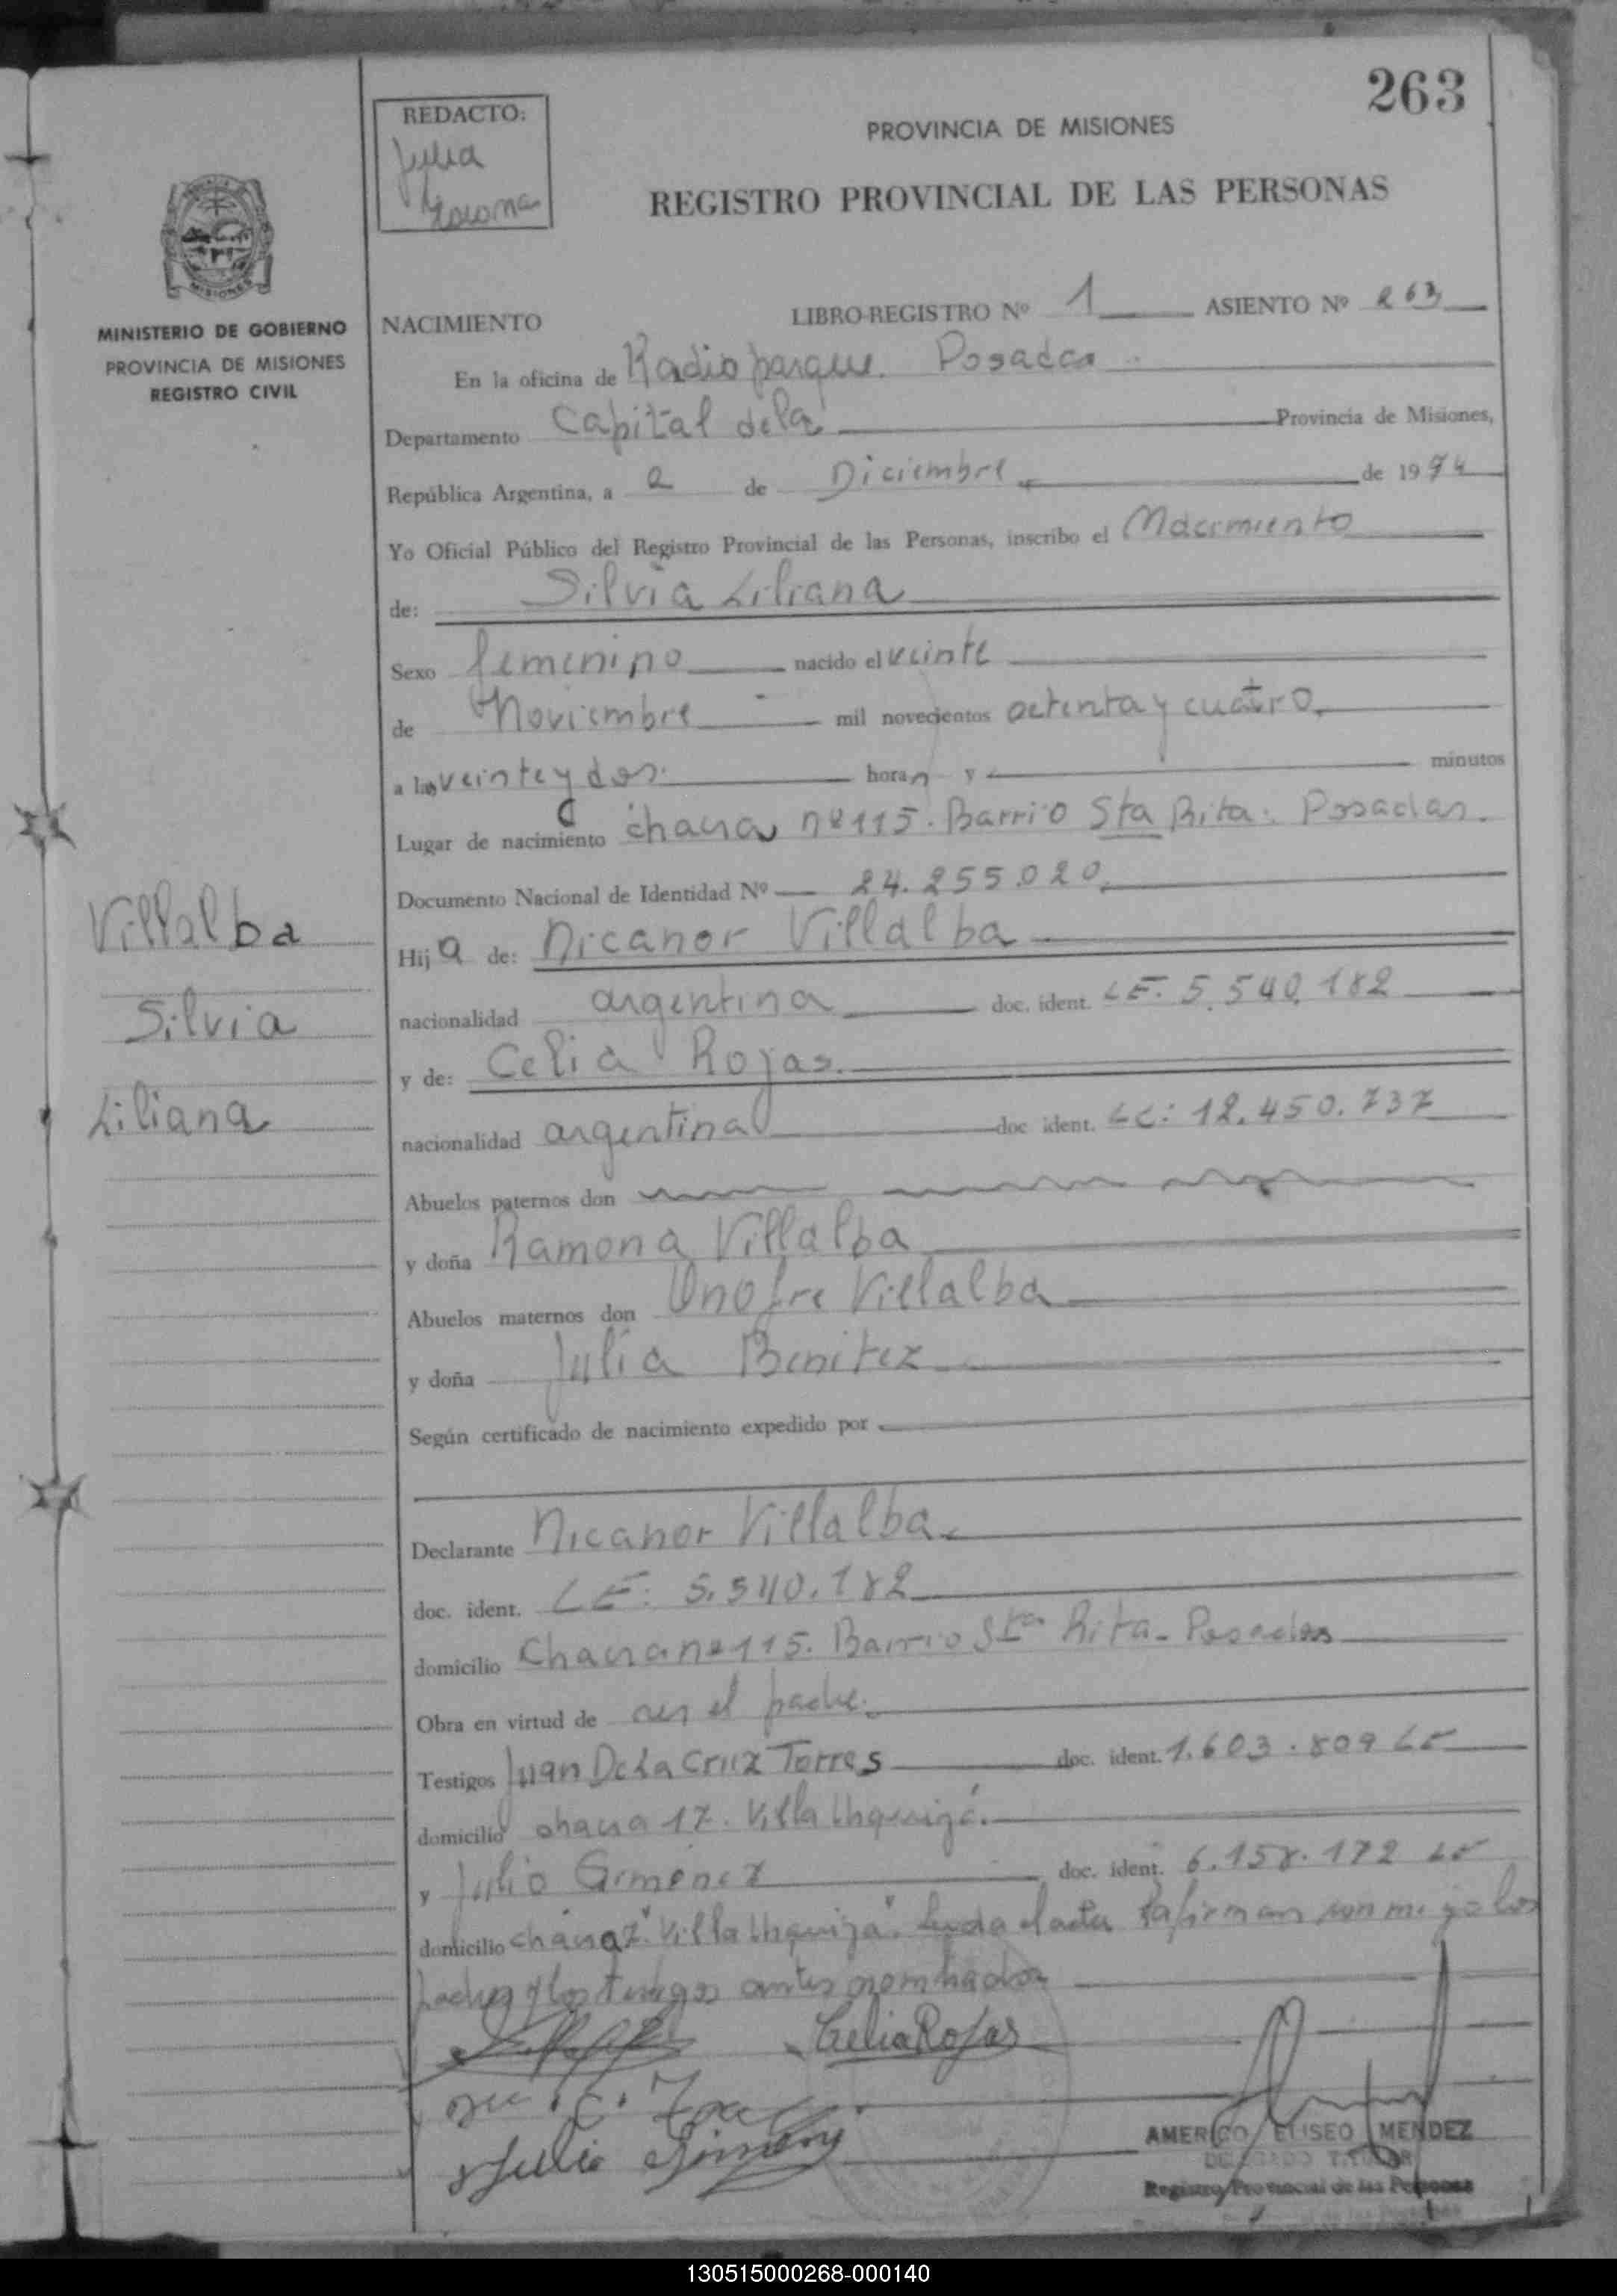 263
REDACTO:
Julia
PROVINCIA DE MISIONES
REGISTRO PROVINCIAL DE LAS PERSONAS
MISIONES
MINISTERIO DE GOBIERNO
PROVINCIA DE MISIONES
REGISTRO CIVIL
NACIMIENTO LIBRO-REGISTRO Nº 1 ASIENTO Nº 263
En la oficina de Radio parque. Posadas.
Departamento Capital de la Provincia de Misiones,
República Argentina, a 2 de Diciembre de 1974
Yo Oficial Público del Registro Provincial de las Personas, inscribo el Nacimiento
de: Silvia Liliana
Sexo femenino nacido el veinte
de Noviembre mil novecientos setenta y cuatro
a las veinte y dos. horas y minutos
Lugar de nacimiento chacra nº 115. Barrio Sta Rita. Posadas.
Documento Nacional de Identidad Nº 24.255.020
Villalba
Silvia
Liliana
Hija de: Nicanor Villalba
nacionalidad argentina doc. ident. LE. 5.540.182
y de: Celia Rojas.
nacionalidad argentina doc ident. LC: 12.450.737
Abuelos paternos don
y doña Ramona Villalba
Abuelos maternos don Onofre Villalba
y doña Julia Benitez
Según certificado de nacimiento expedido por
Declarante Nicanor Villalba.
doc. ident. LE. 5.540.182
domicilio Chacra nº 115. Barrio Sta Rita - Posadas
Obra en virtud de ser el padre.
Testigos Juan De La Cruz Torres doc. ident. 1.603.809 LE
domicilio chacra 17. Villa Urquiza.
y Julio Gimenez doc. ident. 6.158.172 LE
domicilio chacra "Villa Urquiza". Leida el acta la firman conmigo los
padres y los testigos antes nombrados
Celia Rojas
Julio Gimenez
AMERICO ELISEO MENDEZ
DELEGADO TITULAR
Registro Provincial de las Personas
130515000268-000140